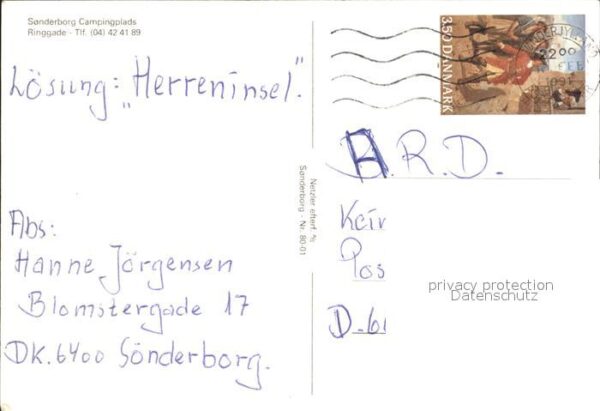 Sønderborg Campingplads
Ringgade - Tlf. (04) 42 41 89
Lösung: "Herreninsel".
Abs:
Hanne Jörgensen
Blomstergade 17
DK.6400 Sönderborg.
Netzler efterf. %
Sønderborg - Nr. 80-01
3.50 DANMARK
22 00
B.R.D.
Keiv
Pos
D-61
privacy protection
Datenschutz